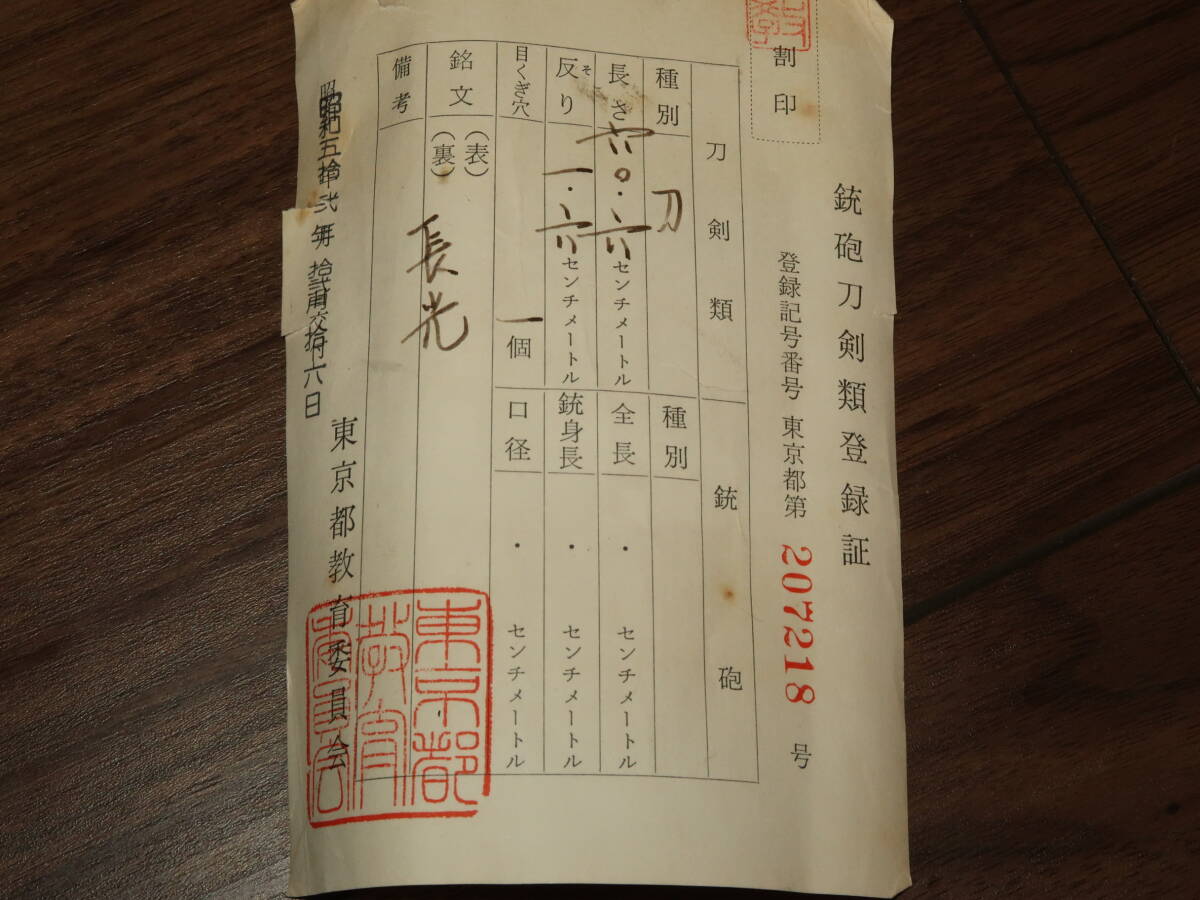 割印
銃砲刀剣類登録証
登録記号番号 東京都第 207218 号
刀剣類
銃砲
種別 刀
種別
長さ 六〇.六センチメートル
全長 ・ センチメートル
反り 一.六センチメートル
そ
銃身長 ・ センチメートル
目くぎ穴 一個
口径 ・ センチメートル
銘文 (表)
(裏)
長光
備考
昭和五拾弐年
拾六日
東京都教育委員会
東京都
教育
委員会